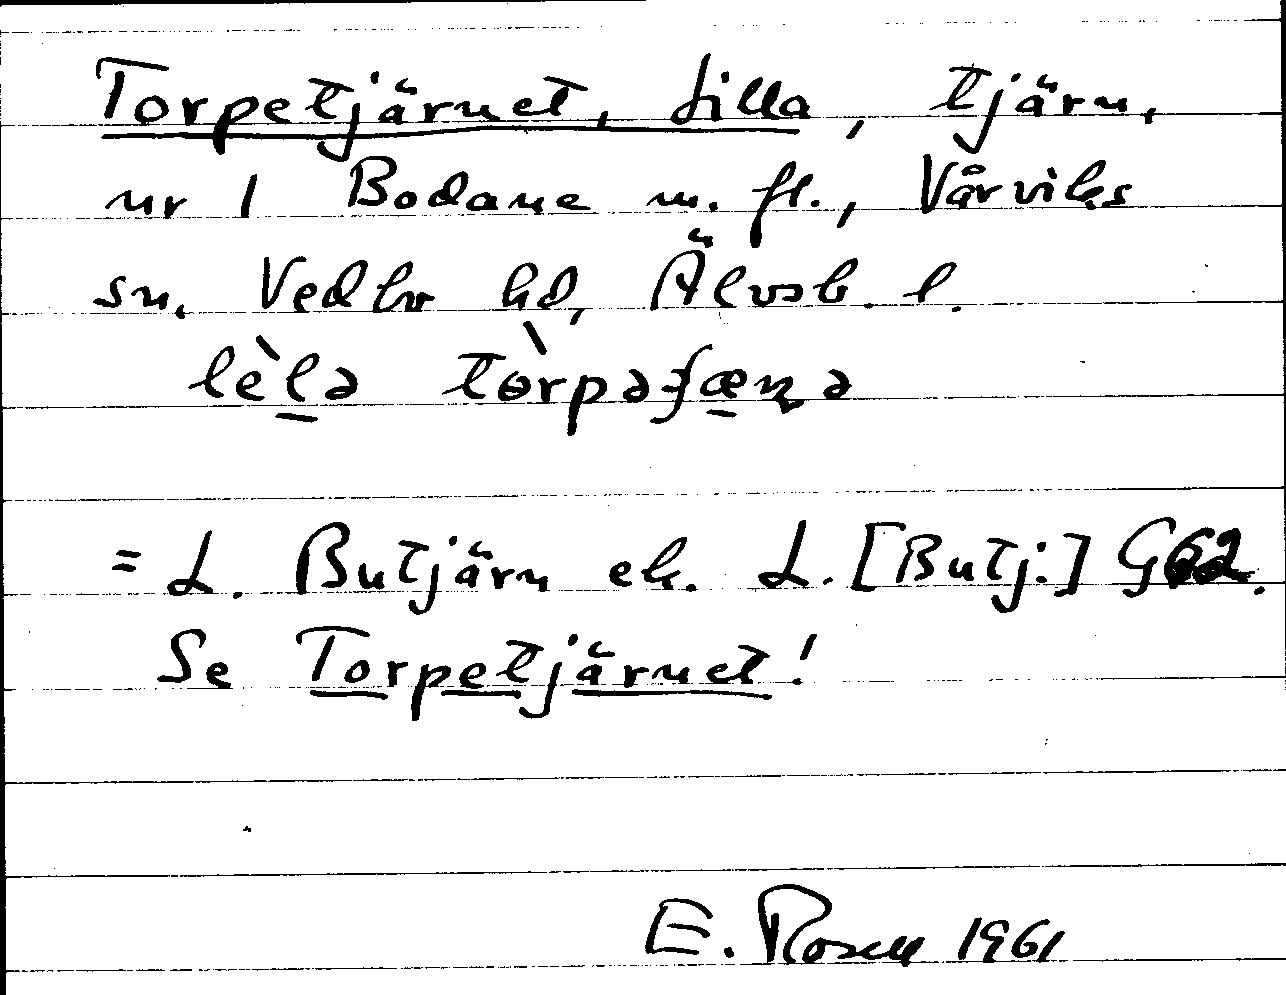 Torpetjärnet, Lilla, tjärn,
nr 1 Bodane m. fl., Vårviks
sn, Vedbo hd, Älvsb. l.
lèlə tòrpəʃæɳə
= L. Butjärn ek. L. [Butj:] G62.
Se Torpetjärnet!
E. Rosell 1961